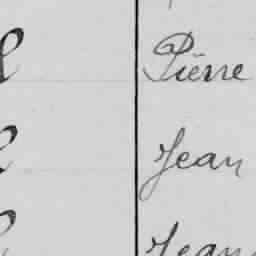 Pierre
Jean
Jean